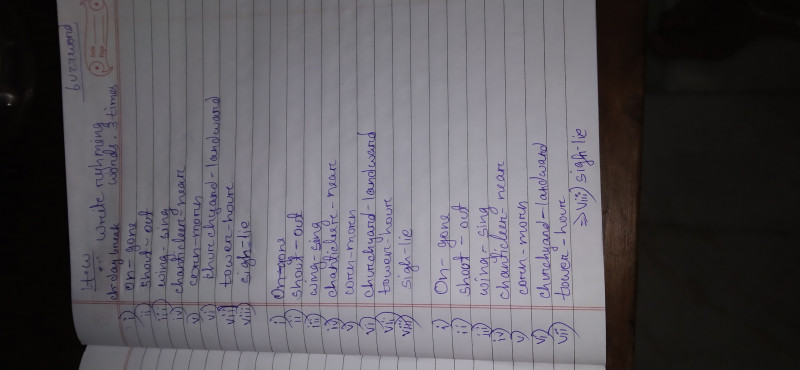 buzzword
H.w
write rhyming
ch-day break words. 3 times
i) on-gone
ii) shout-out
iii) wing-sing
iv) chanticleer-near
v) corn-morn
vi) churchyard-landward
vii) tower-hour
viii) sigh-lie
i) On-gone
ii) shout-out
iii) wing-sing
iv) chanticleer-near
v) corn-morn
vi) churchyard-landward
vii) tower-hour
viii) sigh-lie
i) On-gone
ii) shout-out
iii) wing-sing
iv) chanticleer-near
v) corn-morn
vi) churchyard-landward
vii) tower-hour
⇒viii) sigh-lie